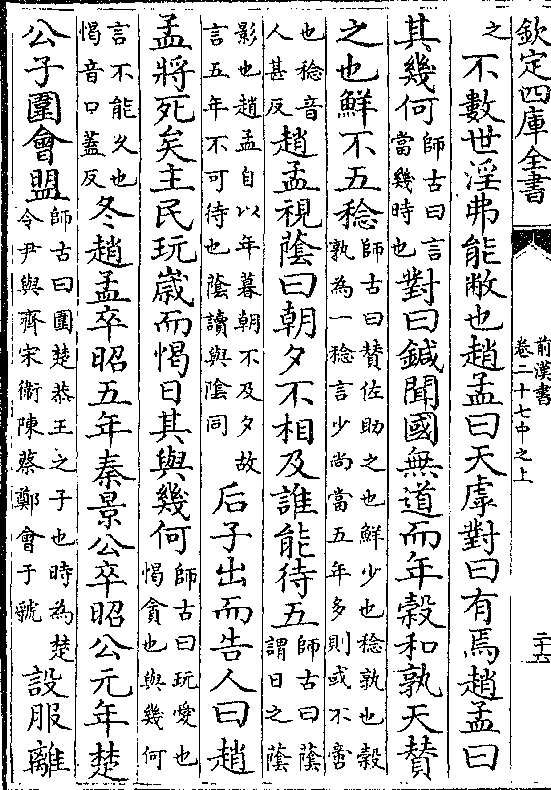 欽定四庫全書
前漢書
卷二十七中之上
二十六
之不數世淫弗能敝也趙孟曰天虖對曰有焉趙孟曰
其幾何師古曰言當幾時也對曰鍼聞國無道而年穀和孰天贊
之也鮮不五稔師古曰贊佐助之也鮮少也稔孰也穀孰為一稔言少尚當五年多則或不啻
也稔音人甚反趙孟視蔭曰朝夕不相及誰能待五師古曰蔭謂日之蔭
影也趙孟自以年暮朝不及夕故言五年不可待也蔭讀與隂同后子出而告人曰趙
孟將死矣主民玩歲而愒日其與幾何師古曰玩愛也愒貪也與幾何
言不能久也愒音口蓋反冬趙孟卒昭五年秦景公卒昭公元年楚
公子圍會盟師古曰圍楚恭王之子也時為楚令尹與齊宋衞陳蔡鄭會于虢設服離